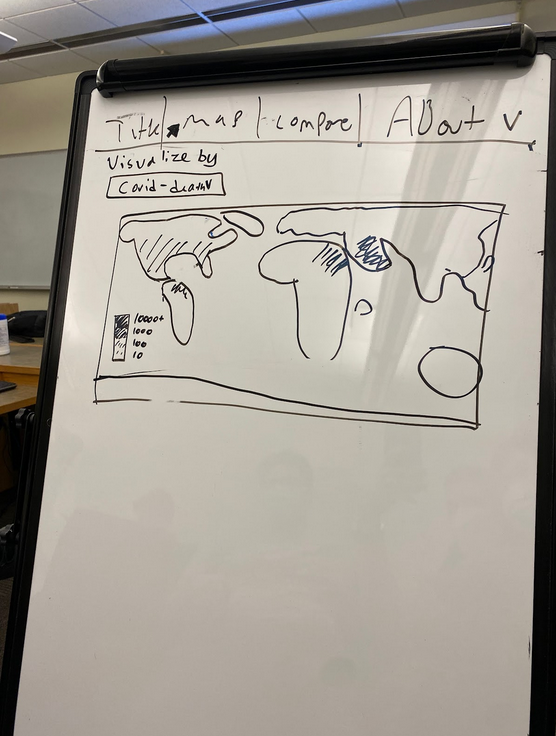 Title | map | compare | About v
Visualize by
Covid-death v
10000+
1000
100
10